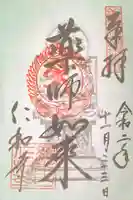 奉拝
令二年
十一月二十三日
薬師如来
仁和寺